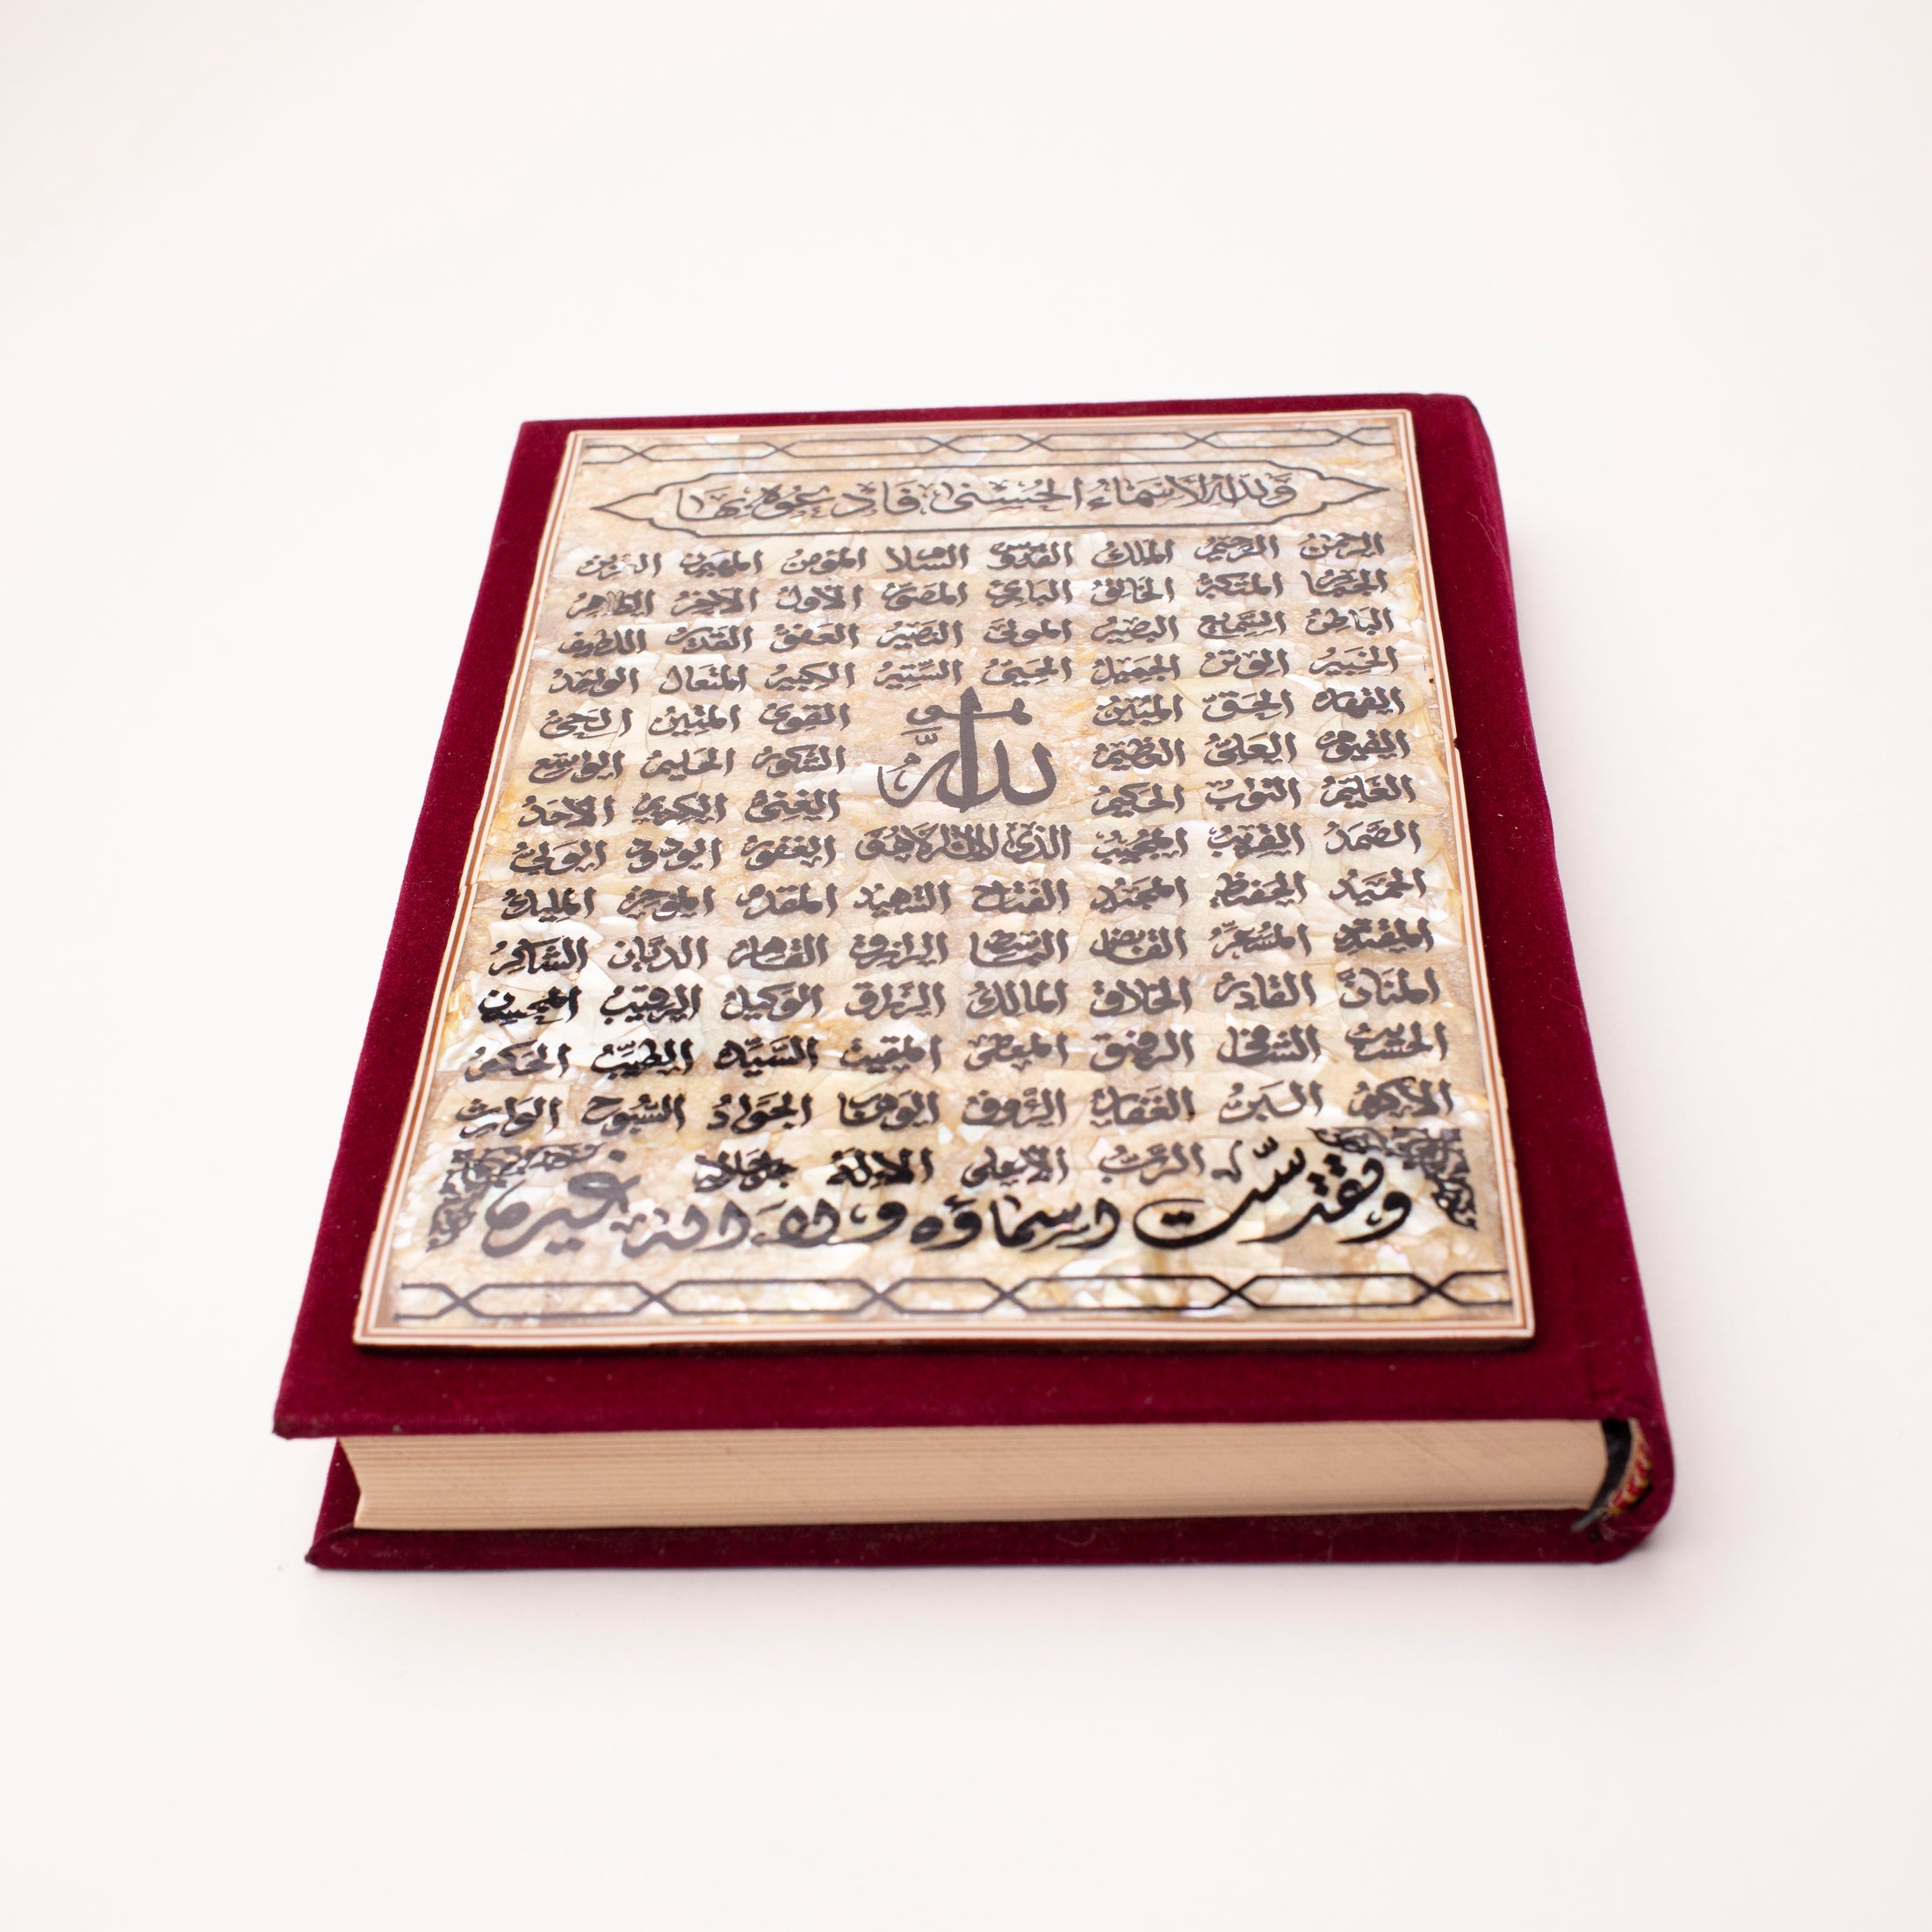 وَلِلَّهِ الْأَسْمَاءُ الْحُسْنَى فَادْعُوهُ بِهَا
الرحمن الرحيم الملك القدوس السلام المؤمن المهيمن العزيز
الجبار المتكبر الخالق البارئ المصور الأول الآخر الظاهر
الباطن السميع البصير المولى النصير العفو القدير اللطيف
الخبير الوتر الجميل الحيي الستير الكبير المتعال الواحد
القهار الحق المبين هو القوي المتين الحي
القيوم العلي العظيم الله الشكور الحليم الواسع
العليم التواب الحكيم الغني الكريم الأحد
الصمد القريب المجيب الذي لا إله إلا هو الغفور الودود الولي
الحميد الحفيظ المجيد الفتاح الشهيد المقدم المؤخر المليك
المقتدر المسعر القابض الباسط الرازق القاهر الديان الشاكر
المنان القادر الخلاق المالك الرزاق الوكيل الرقيب المحسن
الحسيب الشافي الرفيق المعطي المقيت السيد الطيب الحكم
الأكرم البر الغفار الرءوف الوهاب الجواد السبوح الوارث
الرب الأعلى الإله جل جلاله
وتقدست اسماؤه ولا اله غيره